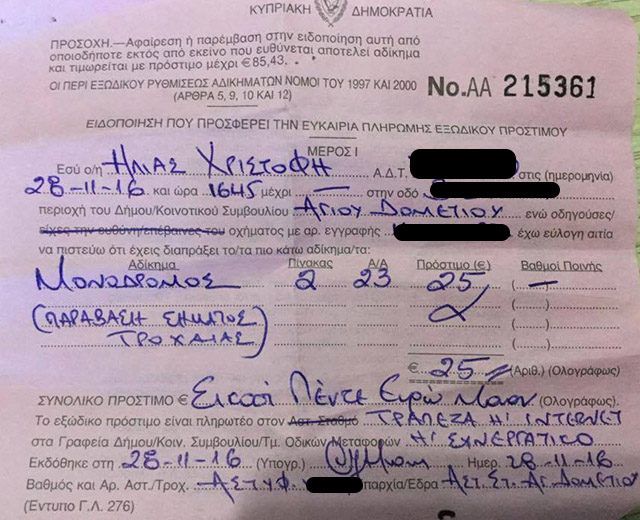 ΚΥΠΡΙΑΚΗ ΔΗΜΟΚΡΑΤΙΑ
ΠΡΟΣΟΧΗ.—Αφαίρεση ή παρέμβαση στην ειδοποίηση αυτή από
οποιοδήποτε εκτός από εκείνο που ευθύνεται αποτελεί αδίκημα
και τιμωρείται με πρόστιμο μέχρι €85,43.
ΟΙ ΠΕΡΙ ΕΞΩΔΙΚΟΥ ΡΥΘΜΙΣΕΩΣ ΑΔΙΚΗΜΑΤΩΝ ΝΟΜΟΙ ΤΟΥ 1997 ΚΑΙ 2000
(ΑΡΘΡΑ 5, 9, 10 ΚΑΙ 12)
No. ΑΑ 215361
ΕΙΔΟΠΟΙΗΣΗ ΠΟΥ ΠΡΟΣΦΕΡΕΙ ΤΗΝ ΕΥΚΑΙΡΙΑ ΠΛΗΡΩΜΗΣ ΕΞΩΔΙΚΟΥ ΠΡΟΣΤΙΜΟΥ
ΜΕΡΟΣ Ι
Εσύ ο/η ΗΛΙΑΣ ΧΡΙΣΤΟΦΗ Α.Δ.Τ. στις (ημερομηνία)
28-11-16 και ώρα 1645 μέχρι — στην οδό
περιοχή του Δήμου/Κοινοτικού Συμβουλίου ΑΓΙΟΥ ΔΟΜΕΤΙΟΥ ενώ οδηγούσες/
είχες την ευθύνη/επέβαινες του οχήματος με αρ. εγγραφής έχω εύλογη αιτία
να πιστεύω ότι έχεις διαπράξει το/τα πιο κάτω αδίκημα/τα:
Αδίκημα Πίνακας Α/Α Πρόστιμο (€) Βαθμοί Ποινής
ΜΟΝΟΔΡΟΜΟΣ 2 23 25 (—)
(ΠΑΡΑΒΑΣΗ ΣΗΜΑΤΟΣ ( )
ΤΡΟΧΑΙΑΣ) ( )
( )
€ 25 (Αριθ.) (Ολογράφως)
ΣΥΝΟΛΙΚΟ ΠΡΟΣΤΙΜΟ € Εικοσι Πέντε Ευρω Μονον (Ολογράφως).
Το εξώδικο πρόστιμο είναι πληρωτέο στον Αστ. Σταθμό ΤΡΑΠΕΖΑ Η' INTERNET
στα Γραφεία Δήμου/Κοιν. Συμβουλίου/Τμ. Οδικών Μεταφορών Η' ΣΥΝΕΡΓΑΤΙΚΟ
Εκδόθηκε στη 28-11-16 (Υπογρ.) Ημερ. 28-11-16
Βαθμός και Αρ. Αστ./Τροχ. ΑΣΤΥΦ. παρχία/Εδρα ΑΣΤ.ΣΤ. ΑΓ. ΔΟΜΕΤΙΟΥ
(Εντυπο Γ.Λ. 276)